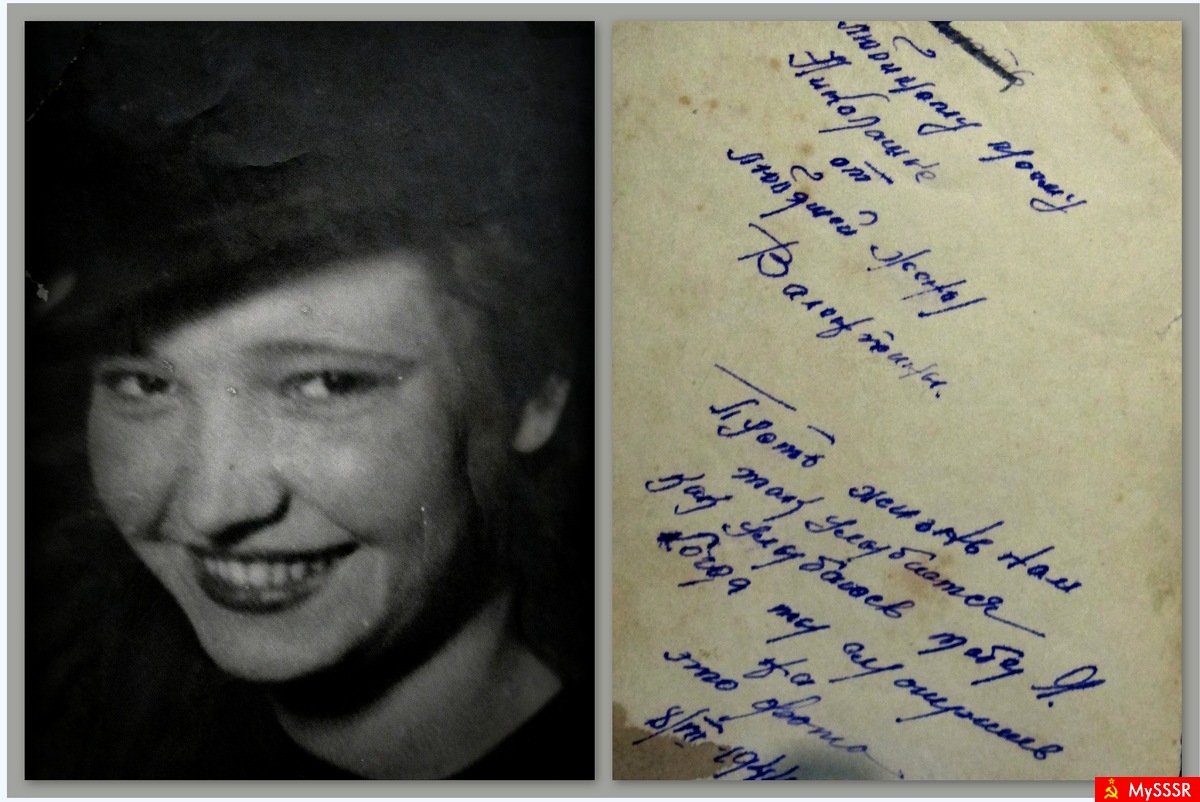 любимому другу
Николашке
от
любящей жены
Валентины.
Пусть жизнь нам
так улыбается
как улыбаюсь тебе Я.
Когда ты смотришь
на
это фото.
8/III-194
MySSSR